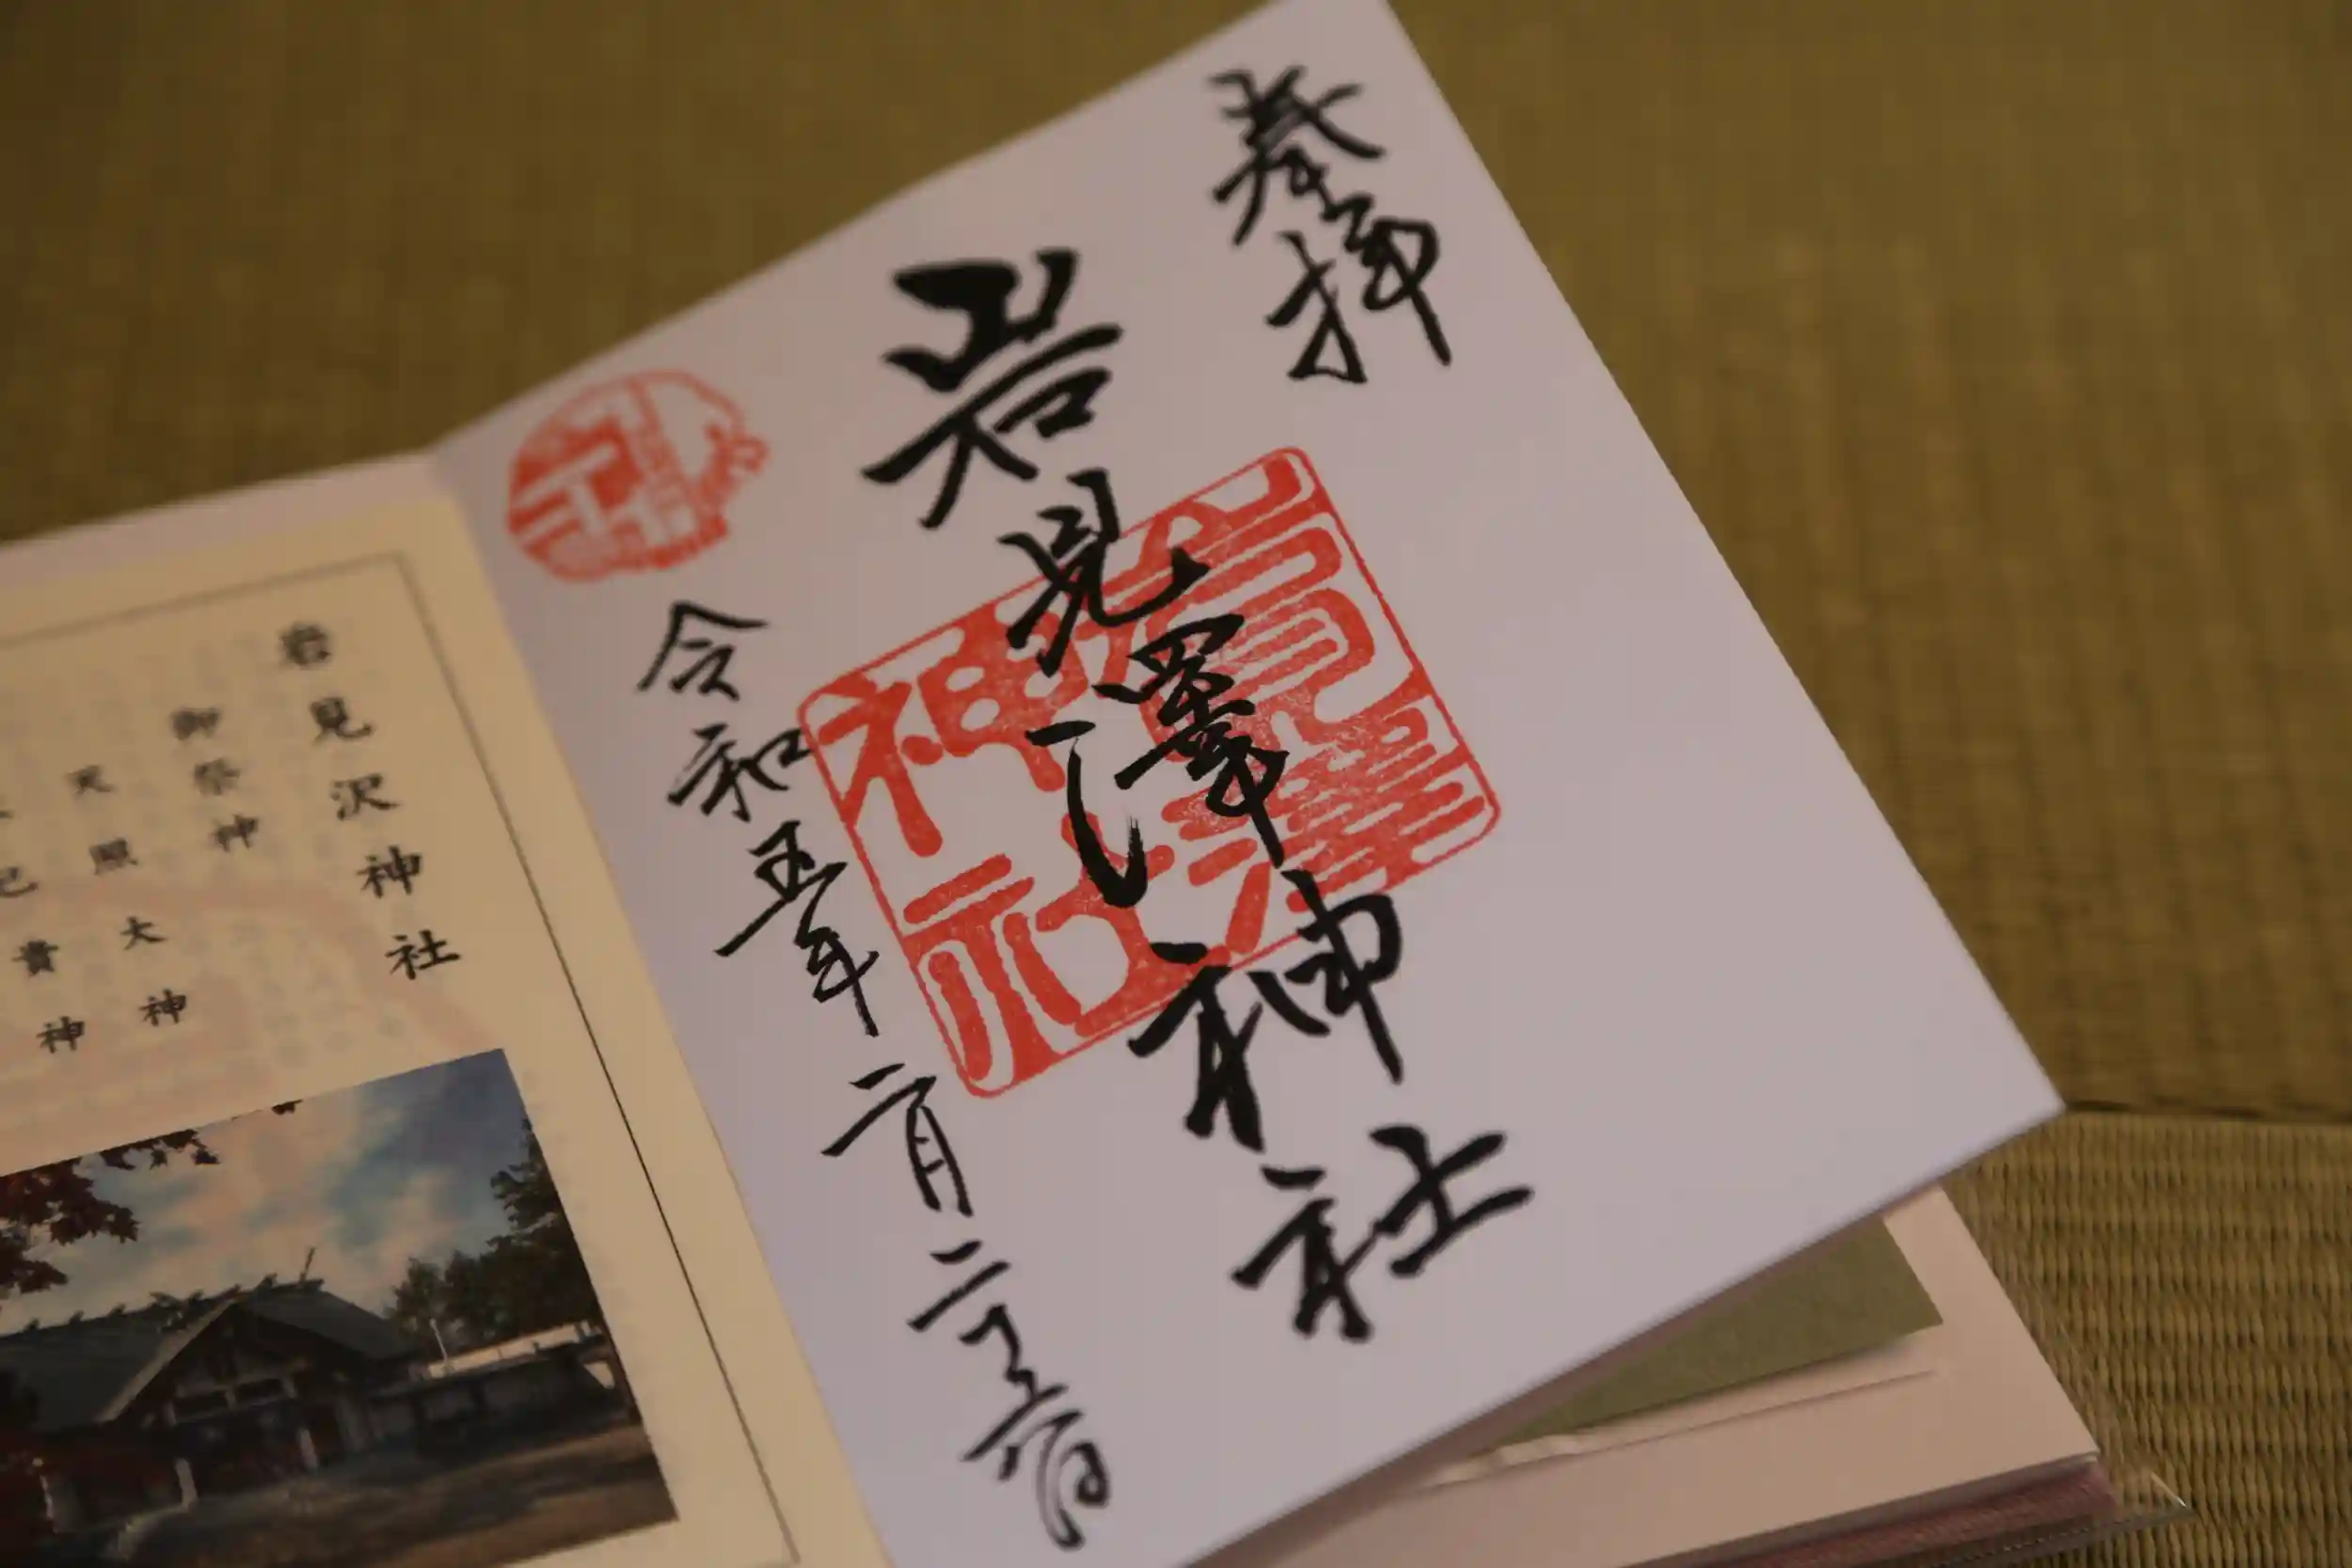 奉拝
岩見澤神社
令和五年二月二十五日
神社
岩見沢神社
御祭神
天照大神
己貴神